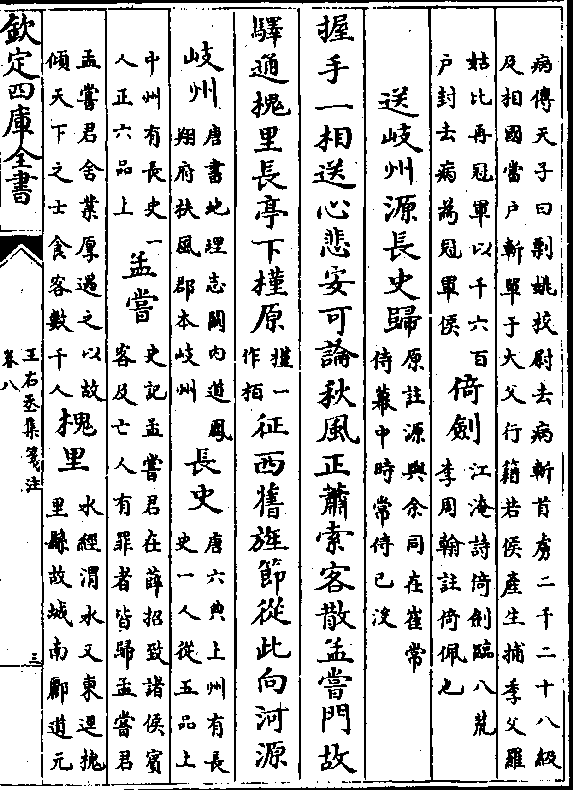 病傳天子曰剽姚校尉去病斬首虜二千二十八級
及相國當户斬單于大父行籍若侯產生捕季父羅
姑比再冠軍以千六百
户封去病為冠軍侯
倚劍
江淹詩倚劍臨八荒
李周翰註倚佩也
送岐州源長史歸
原註源與余同在崔常
侍幕中時常侍已没
握手一相送心悲安可論秋風正蕭索客散孟嘗門故
驛通槐里長亭下槿原
槿一
作栢
征西舊旌節從此向河源
岐州
唐書地理志關内道鳳
翔府扶風郡本岐州
長史
唐六典上州有長
史一人從五品上
中州有長史一
人正六品上
孟嘗
史記孟嘗君在薛招致諸侯賓
客及亡人有罪者皆歸孟嘗君
孟嘗君舍業厚遇之以故
傾天下之士食客數千人
槐里
水經渭水又東逕槐
里縣故城南酈道元
欽定四庫全書
王右丞集箋注
卷八
三